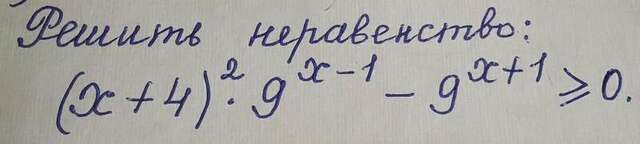 Решить неравенство:
(x+4)²·9^(x-1) - 9^(x+1) ⩾ 0.